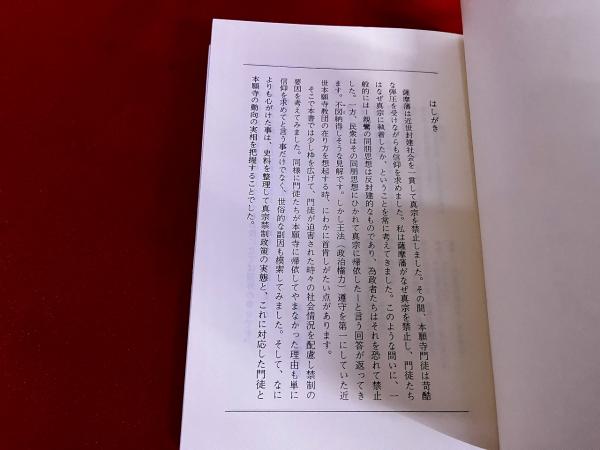 はしがき
薩摩藩は近世封建社会を一貫して真宗を禁止しました。その間、本願寺門徒は苛酷
な弾圧を受けながらも信仰を求めました。私は薩摩藩がなぜ真宗を禁止し、門徒たち
はなぜ真宗に執着したか、ということを常に考えてきました。このような問いに、一
般的には―親鸞の同朋思想は反封建的なものであり、為政者たちはそれを恐れて禁止
した。一方、民衆はその同朋思想にひかれて真宗に帰依した―と言う回答が返ってき
ます。不図納得しそうな見解です。しかし王法（政治権力）遵守を第一にしていた近
世本願寺教団の在り方を想起する時、にわかに首肯しがたい点があります。
そこで本書では少し枠を広げて、門徒が迫害された時々の社会情況を配慮し禁制の
要因を考えてみました。同様に門徒たちが本願寺に帰依してやまなかった理由も単に
信仰を求めてと言う事だけでなく、世俗的な副因も模索してみました。そして、なに
よりも心がけた事は、史料を整理して真宗禁制政策の実態と、これに対応した門徒と
本願寺の動向の実相を把握することでした。